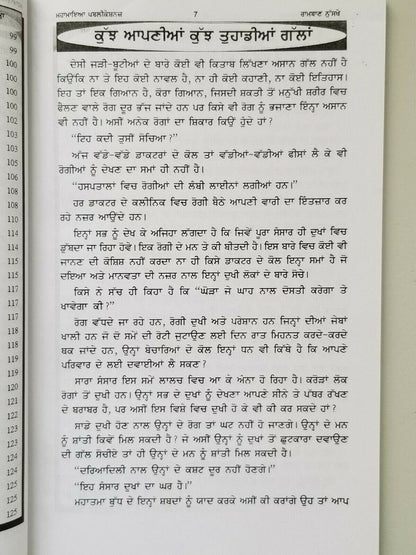 ਮਹਾਮਾਇਆ ਪਬਲੀਕੇਸ਼ਨਜ਼ 7 ਰਾਮਬਾਣ ਨੁੱਸਖੇ
ਕੁੱਝ ਆਪਣੀਆਂ ਕੁੱਝ ਤੁਹਾਡੀਆਂ ਗੱਲਾਂ
ਦੇਸੀ ਜੜੀ-ਬੂਟੀਆਂ ਦੇ ਬਾਰੇ ਕੋਈ ਵੀ ਕਿਤਾਬ ਲਿੱਖਣਾ ਅਸਾਨ ਗੱਲ ਨਹੀਂ ਹੈ
ਕਿਉਂਕਿ ਨਾ ਤੇ ਇਹ ਕੋਈ ਨਾਵਲ ਹੈ, ਨਾ ਹੀ ਕੋਈ ਕਹਾਣੀ, ਨਾ ਕੋਈ ਇਤਿਹਾਸ।
ਇਹ ਤਾਂ ਇਕ ਗਿਆਨ ਹੈ, ਕੋਰਾ ਗਿਆਨ, ਜਿਸਦੀ ਸ਼ਕਤੀ ਤੋਂ ਮਨੁੱਖੀ ਸ਼ਰੀਰ ਵਿਚ
ਫੈਲਣ ਵਾਲੇ ਰੋਗ ਦੂਰ ਭੱਜ ਜਾਂਦੇ ਹਨ ਪਰ ਕਿਸੇ ਵੀ ਰੋਗ ਨੂੰ ਭਜਾਣਾ ਇੰਨ੍ਹਾ ਅਸਾਨ
ਵੀ ਨਹੀਂ ਹੈ। ਅਸੀਂ ਅਨੇਕ ਰੋਗਾਂ ਦਾ ਸ਼ਿਕਾਰ ਕਿਉਂ ਹੁੰਦੇ ਹਾਂ?
“ਇਹ ਕਦੀ ਤੁਸੀਂ ਸੋਚਿਆ?”
ਅੱਜ ਵੱਡੇ-ਵੱਡੇ ਡਾਕਟਰਾਂ ਦੇ ਕੋਲ ਤਾਂ ਵੱਡੀਆਂ-ਵੱਡੀਆਂ ਫੀਸਾਂ ਲੈ ਕੇ ਵੀ
ਰੋਗੀਆਂ ਨੂੰ ਦੇਖਣ ਦਾ ਸਮਾਂ ਹੀ ਨਹੀਂ ਹੈ।
“ਹਸਪਤਾਲਾਂ ਵਿਚ ਰੋਗੀਆਂ ਦੀ ਲੰਬੀ ਲਾਈਨਾਂ ਲਗੀਆਂ ਹਨ।”
ਹਰ ਡਾਕਟਰ ਦੇ ਕਲੀਨਿਕ ਵਿਚ ਰੋਗੀ ਬੈਠੇ ਆਪਣੀ ਵਾਰੀ ਦਾ ਇੰਤਜ਼ਾਰ ਕਰ
ਰਹੇ ਨਜ਼ਰ ਆਉਂਦੇ ਹਨ।
ਇਨ੍ਹਾਂ ਸਭ ਨੂੰ ਦੇਖ ਕੇ ਅਜਿਹਾ ਲੱਗਦਾ ਹੈ ਕਿ ਜਿਵੇਂ ਪੂਰਾ ਸੰਸਾਰ ਹੀ ਦੁਖਾਂ ਵਿਚ
ਡੁੱਬਦਾ ਜਾ ਰਿਹਾ ਹੋਵੇ। ਇਕ ਰੋਗੀ ਦੇ ਮਨ ਤੇ ਕੀ ਬੀਤਦੀ ਹੈ। ਇਸ ਬਾਰੇ ਵਿਚ ਕੋਈ ਵੀ
ਜਾਨਣ ਦੀ ਕੋਸ਼ਿਸ਼ ਨਹੀਂ ਕਰਦਾ ਨਾ ਹੀ ਕਿਸੇ ਡਾਕਟਰ ਦੇ ਕੋਲ ਇੰਨਾ ਸਮਾਂ ਹੈ ਜੋ
ਦਇਆ ਅਤੇ ਮਾਨਵਤਾ ਦੀ ਨਜ਼ਰ ਨਾਲ ਇਨ੍ਹਾਂ ਦੁਖੀ ਲੋਕਾਂ ਦੇ ਬਾਰੇ ਸੋਚੇ।
ਕਿਸੇ ਨੇ ਸੱਚ ਹੀ ਕਿਹਾ ਹੈ ਕਿ “ਘੋੜਾ ਜੇ ਘਾਹ ਨਾਲ ਦੋਸਤੀ ਕਰੇਗਾ ਤੇ
ਖਾਵੇਗਾ ਕੀ?”
ਰੋਗ ਵੱਧਦੇ ਜਾ ਰਹੇ ਹਨ, ਰੋਗੀ ਦੁਖੀ ਅਤੇ ਪਰੇਸ਼ਾਨ ਹਨ ਜਿਨ੍ਹਾਂ ਦੀਆਂ ਜੇਬਾਂ
ਖਾਲੀ ਹਨ ਜੋ ਦੋ ਸਮੇਂ ਦੀ ਰੋਟੀ ਜੁਟਾਉਣ ਲਈ ਦਿਨ ਰਾਤ ਮਿਹਨਤ ਕਰਦੇ-ਕਰਦੇ
ਥਕ ਜਾਂਦੇ ਹਨ, ਉਨ੍ਹਾਂ ਬੇਚਾਰਿਆਂ ਦੇ ਕੋਲ ਇੰਨਾ ਧਨ ਵੀ ਕਿੱਥੇ ਹੈ ਕਿ ਆਪਣੇ
ਪਰਿਵਾਰ ਦੇ ਲਈ ਦਵਾਈਆਂ ਲੈ ਸਕਣ?
ਸਾਰਾ ਸੰਸਾਰ ਇਸ ਸਮੇਂ ਲਾਲਚ ਵਿਚ ਆ ਕੇ ਅੰਨਾ ਹੋ ਰਿਹਾ ਹੈ। ਕਰੋੜਾਂ ਲੋਕ
ਰੋਗਾਂ ਤੋਂ ਦੁਖੀ ਹਨ। ਉਨ੍ਹਾਂ ਸਭ ਦੇ ਦੁਖਾਂ ਨੂੰ ਦੇਖਣਾ ਆਪਣੇ ਸੀਨੇ ਤੇ ਪੱਥਰ ਰੱਖਣ
ਦੇ ਬਰਾਬਰ ਹੈ, ਪਰ ਅਸੀਂ ਇਸ ਵਿਸ਼ੇ ਵਿਚ ਦੁਖੀ ਹੋ ਕੇ ਵੀ ਕੀ ਕਰ ਸਕਦੇ ਹਾਂ?
ਸਾਡੇ ਦੁਖੀ ਹੋਣ ਨਾਲ ਉਨ੍ਹਾਂ ਦੇ ਰੋਗ ਤਾਂ ਘਟ ਨਹੀਂ ਹੋ ਜਾਣਗੇ। ਉਨ੍ਹਾਂ ਦੇ ਮਨ
ਨੂੰ ਸ਼ਾਂਤੀ ਕਿਵੇਂ ਮਿਲ ਸਕਦੀ ਹੈ? ਜੇ ਅਸੀਂ ਉਨ੍ਹਾਂ ਨੂੰ ਦੁਖਾਂ ਤੋਂ ਛੁਟਕਾਰਾ ਦਵਾਉਣ
ਦੀ ਗੱਲ ਸੋਚੀਏ ਤਾਂ ਹੀ ਉਨ੍ਹਾਂ ਦੇ ਮਨ ਨੂੰ ਸ਼ਾਂਤੀ ਮਿਲ ਸਕਦੀ ਹੈ।
“ਦਰਿਆਦਿਲੀ ਨਾਲ ਉਨ੍ਹਾਂ ਦੇ ਕਸ਼ਟ ਦੂਰ ਨਹੀਂ ਹੋਣਗੇ।”
“ਇਹ ਸੰਸਾਰ ਦੁਖਾਂ ਦਾ ਘਰ ਹੈ।”
ਮਹਾਤਮਾ ਬੁੱਧ ਦੇ ਇਨ੍ਹਾਂ ਸ਼ਬਦਾਂ ਨੂੰ ਯਾਦ ਕਰਕੇ ਅਸੀਂ ਕੀ ਕਰਾਂਗੇ ਉਹ ਤਾਂ ਆਪ